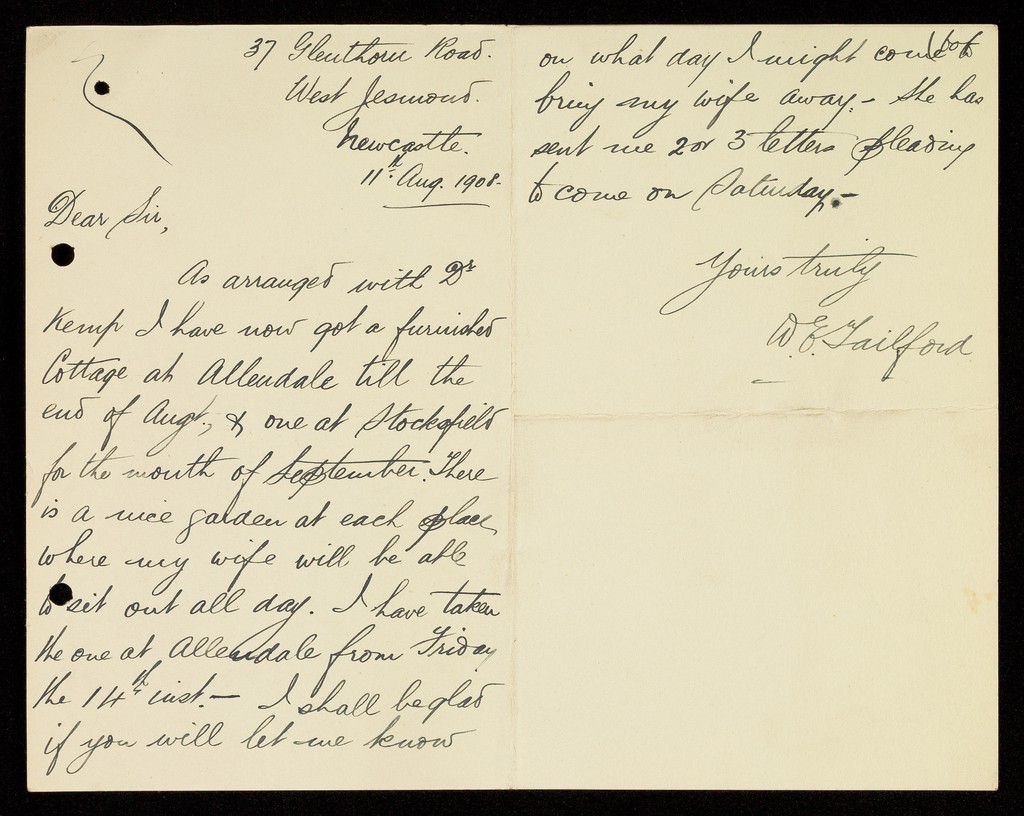 37 Glenthorn Road.
West Jesmond.
Newcastle.
11th Aug. 1908.
Dear Sir,
As arranged with Dr
Kemp I have now got a furnished
Cottage at Allendale till the
end of Augt., & one at Stocksfield
for the month of September. There
is a nice garden at each place
where my wife will be able
to sit out all day. I have taken
the one at Allendale from Friday
the 14th inst. — I shall be glad
if you will let me know
on what day I might come to
bring my wife away. — She has
sent me 2 or 3 letters pleading
to come on Saturday. —
Yours truly
W. E. Tailford